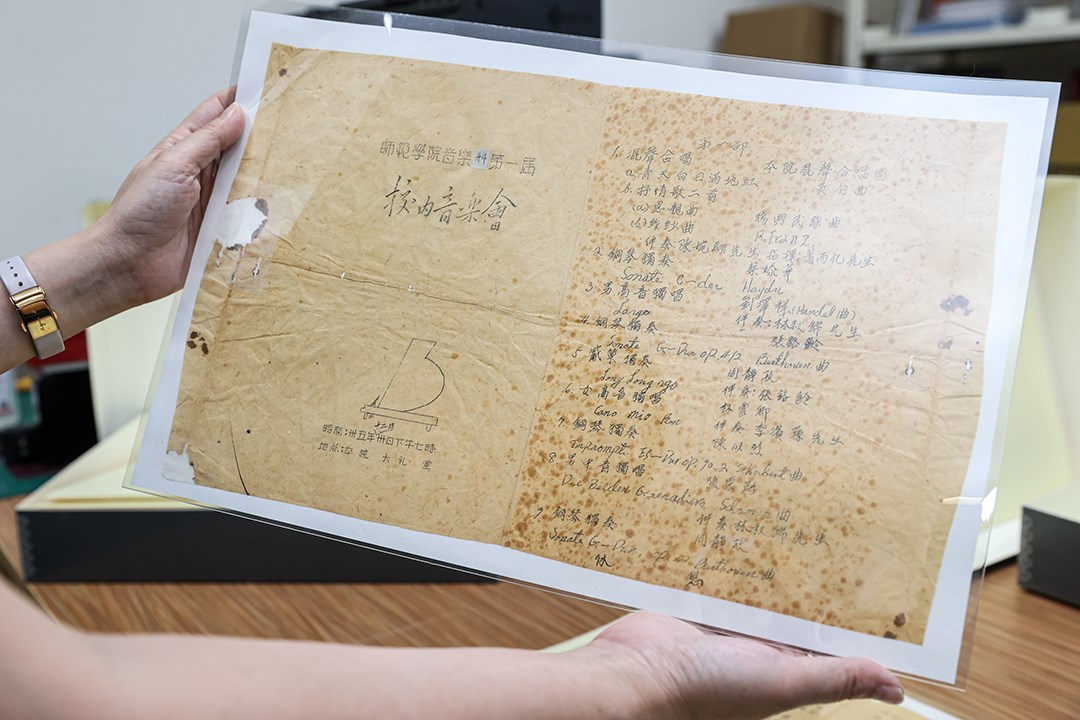 師範學院音樂科第一屆
校內音楽會
十二月
時間:卅五年卅日下午七時
地点:本院大礼堂
第一部
1. 混聲合唱 本院混聲合唱團
a. 青天白日滿地紅
b. 抒情歌二首
(a) 思親曲
(b) R. Franz
伴奏:陳 先生 指揮:蕭而化先生
2. 鋼琴獨奏
Sonate C-dur Haydn
3. 男高音獨唱 (Handel曲)
Largo 伴奏:林秋錦先生
4. 鋼琴獨奏
Sonate G-Dur op. 49, 2 Beethoven曲
5. 獨奏 周靜
Long Long ago 伴奏:張
6. 女高音獨唱 林
Caro Mio Ben 伴奏 李 先生
7. 鋼琴獨奏 陳以
Impromptu Es-Dur op. 90. 2 Schubert曲
8. 男中音獨唱 張
Die Beiden Grenadiere 曲
伴奏林秋錦先生
9. 鋼琴獨奏 周靜
Sonate G-Dur Beethoven曲
休 息